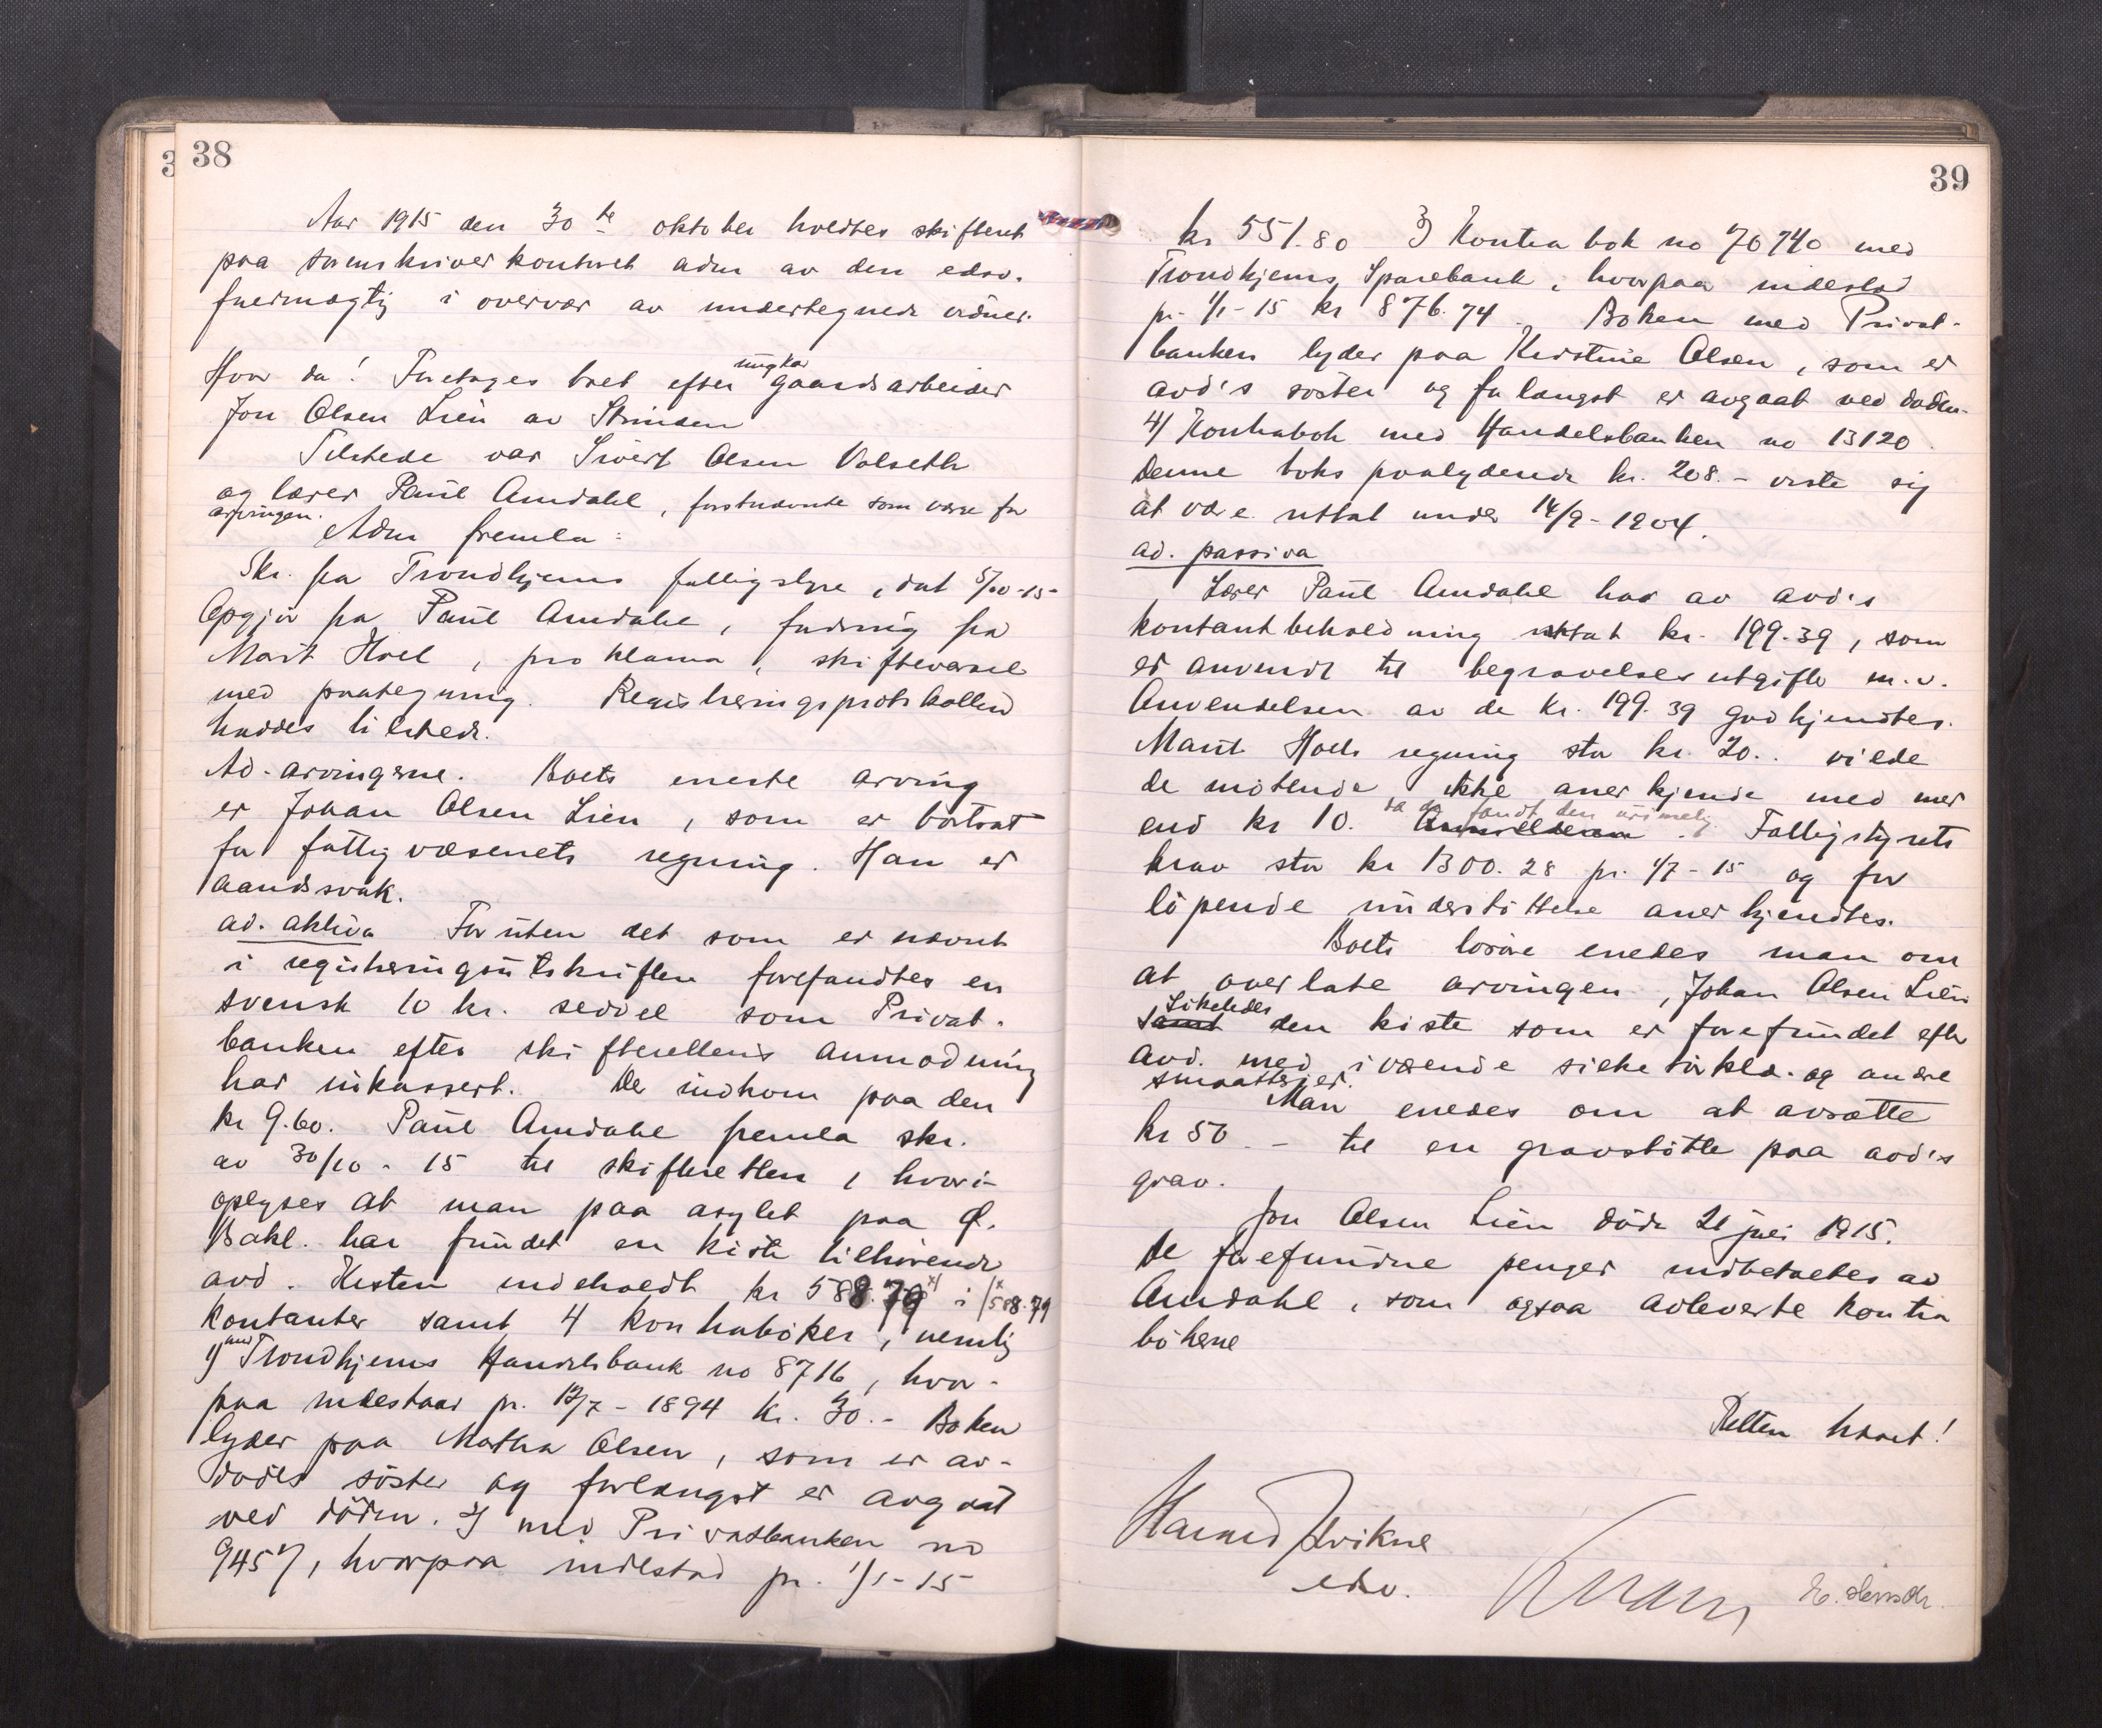 38
Aar 1915 den 30te oktober holdtes skifteret
paa sorenskriverkontoret adm av den edsv.
fuldmægtig i overvær av undertegnede vidner.
Hvor da! Foretages boet efter ungkar gaardsarbeider
Jon Olsen Lien av Strinden
Tilstede var Sivert Olsen Volseth
og lærer Paul Amdahl, forstnævnte som værge for
arvingen.
Adm fremla:
Skr. fra Trondhjems fattigstyre, dat 5/10-15-
Opgjør fra Paul Amdahl, fordring fra
Marit Hoel, proklama, skiftevarsel
med paategning. Registreringsprotokollen
haddes tilstede.
Ad. arvingerne. Boets eneste arving
er Johan Olsen Lien, som er bortsat
for fattigvæsenets regning. Han er
aandssvak.
ad. aktiva Foruten det som er nævnt
i registreringsutskriften forefandtes en
svensk 10 kr. seddel som Privat-
banken efter skifterettens anmodning
har inkassert. De indkom paa den
kr 9.60. Paul Amdahl fremla skr.
av 30/10-15 til skifteretten, hvori
oplyses at man paa asylet paa Ø.
Bakl. har fundet en kiste tilhørende
avd. Kisten indeholdt kr 588.79 x) i /x 588.79
kontanter samt 4 kontrabøker, nemlig
1) med Trondhjems Handelsbank no 8716, hvor-
paa indestaar pr. 12/7-1894 kr. 30.- Boken
lyder paa Martha Olsen, som er av-
dødes søster og forlængst er avgaat
ved døden. 2) med Privatbanken no
9457, hvorpaa indestod pr. 1/1-15
39
kr 551.80 3) Kontrabok no 70740 med
Trondhjems Sparebank, hvorpaa indestod
pr. 1/1-15 kr 876.74. Boken med Privat-
banken lyder paa Kirstine Olsen, som er
avd's søster og forlængst er avgaat ved døden.
4) Kontrabok med Handelsbanken no 13120.
Denne boks paalydende kr. 208.- viste sig
at være uttat under 14/9-1904.
ad. passiva
Lærer Paul Amdahl har av avd's
kontantbeholdning uttat kr. 199.39, som
er anvendt til begravelsesutgifter m.v.
Anvendelsen av de kr. 199.39 godkjendtes.
Marit Hoels regning stor kr. 20.. vilde
de møtende ikke anerkjende med mer
end kr 10. da de fandt den urimelig. Fattigstyrets
krav stor kr 1300.28 pr. 1/7-15 og for
løpende understøttelse anerkjendtes.
Boets løsøre enedes man om
at overlate arvingen, Johan Olsen Lien
Likeledes samt den kiste som er forefundet efter
avd. med iværende silketørklæ. og andre
smaatterier.
Man enedes om at avsætte
kr 50.- til en gravstøtte paa avd's
grav.
Jon Olsen Lien døde 21 juli 1915.
De forefundne penger indbetaltes av
Amdahl, som ogsaa avleverte kontra
bøkene
Retten hævet!
edsv.